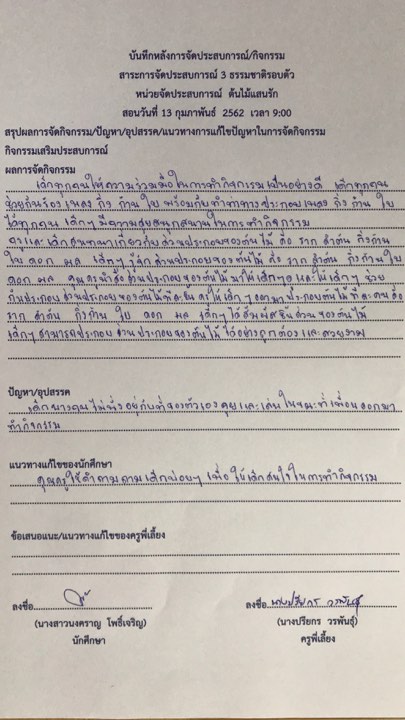 บันทึกหลังการจัดประสบการณ์/กิจกรรม
สาระการจัดประสบการณ์ 3 ธรรมชาติรอบตัว
หน่วยจัดประสบการณ์ ต้นไม้แสนรัก
สอนวันที่ 13 กุมภาพันธ์ 2562 เวลา 9:00
สรุปผลการจัดกิจกรรม/ปัญหา/อุปสรรค/แนวทางการแก้ไขปัญหาในการจัดกิจกรรม
กิจกรรมเสริมประสบการณ์
ผลการจัดกิจกรรม
เด็กทุกคนให้ความร่วมมือในการทำกิจกรรมเป็นอย่างดี เด็กทุกคน
ช่วยกันร้องเพลง กิ่ง ก้าน ใบ พร้อมกับทำท่าทางประกอบเพลง กิ่ง ก้าน ใบ
ได้ทุกคน เด็กๆ มีความสุขสนุกสนานในการทำกิจกรรม
ครูและเด็กสนทนาเกี่ยวกับส่วนประกอบของต้นไม้ คือ ราก ลำต้น กิ่งก้าน
ใบ ดอก ผล เด็กๆ รู้จักส่วนประกอบของต้นไม้ คือ ราก ลำต้น กิ่งก้าน ใบ
ดอก ผล ครูนำสื่อส่วนประกอบของต้นไม้มาให้เด็กๆ ดู และให้เด็กๆ ช่วย
กันประกอบส่วนประกอบของต้นไม้ทีละชิ้น ครูให้เด็กๆ ออกมาประกอบต้นไม้ทีละคน คือ
ราก ลำต้น กิ่งก้าน ใบ ดอก ผล เด็กๆ ได้สัมผัสชิ้นส่วนของต้นไม้
เด็กๆ สามารถประกอบส่วนประกอบของต้นไม้ได้อย่างถูกต้องและสวยงาม
ปัญหา/อุปสรรค
เด็กบางคนไม่นั่งอยู่กับที่ของตัวเอง คุยและเล่นในขณะที่เพื่อนออกมา
ทำกิจกรรม
แนวทางแก้ไขของนักศึกษา
คุณครูใช้คำถามถามเด็กบ่อยๆ เพื่อให้เด็กสนใจในการทำกิจกรรม
ข้อเสนอแนะ/แนวทางแก้ไขของครูพี่เลี้ยง
ลงชื่อ
(นางสาวนงคราญ โพธิ์เจริญ)
นักศึกษา
ลงชื่อ นางปรียกร วรพันธุ์
(นางปรียกร วรพันธุ์)
ครูพี่เลี้ยง